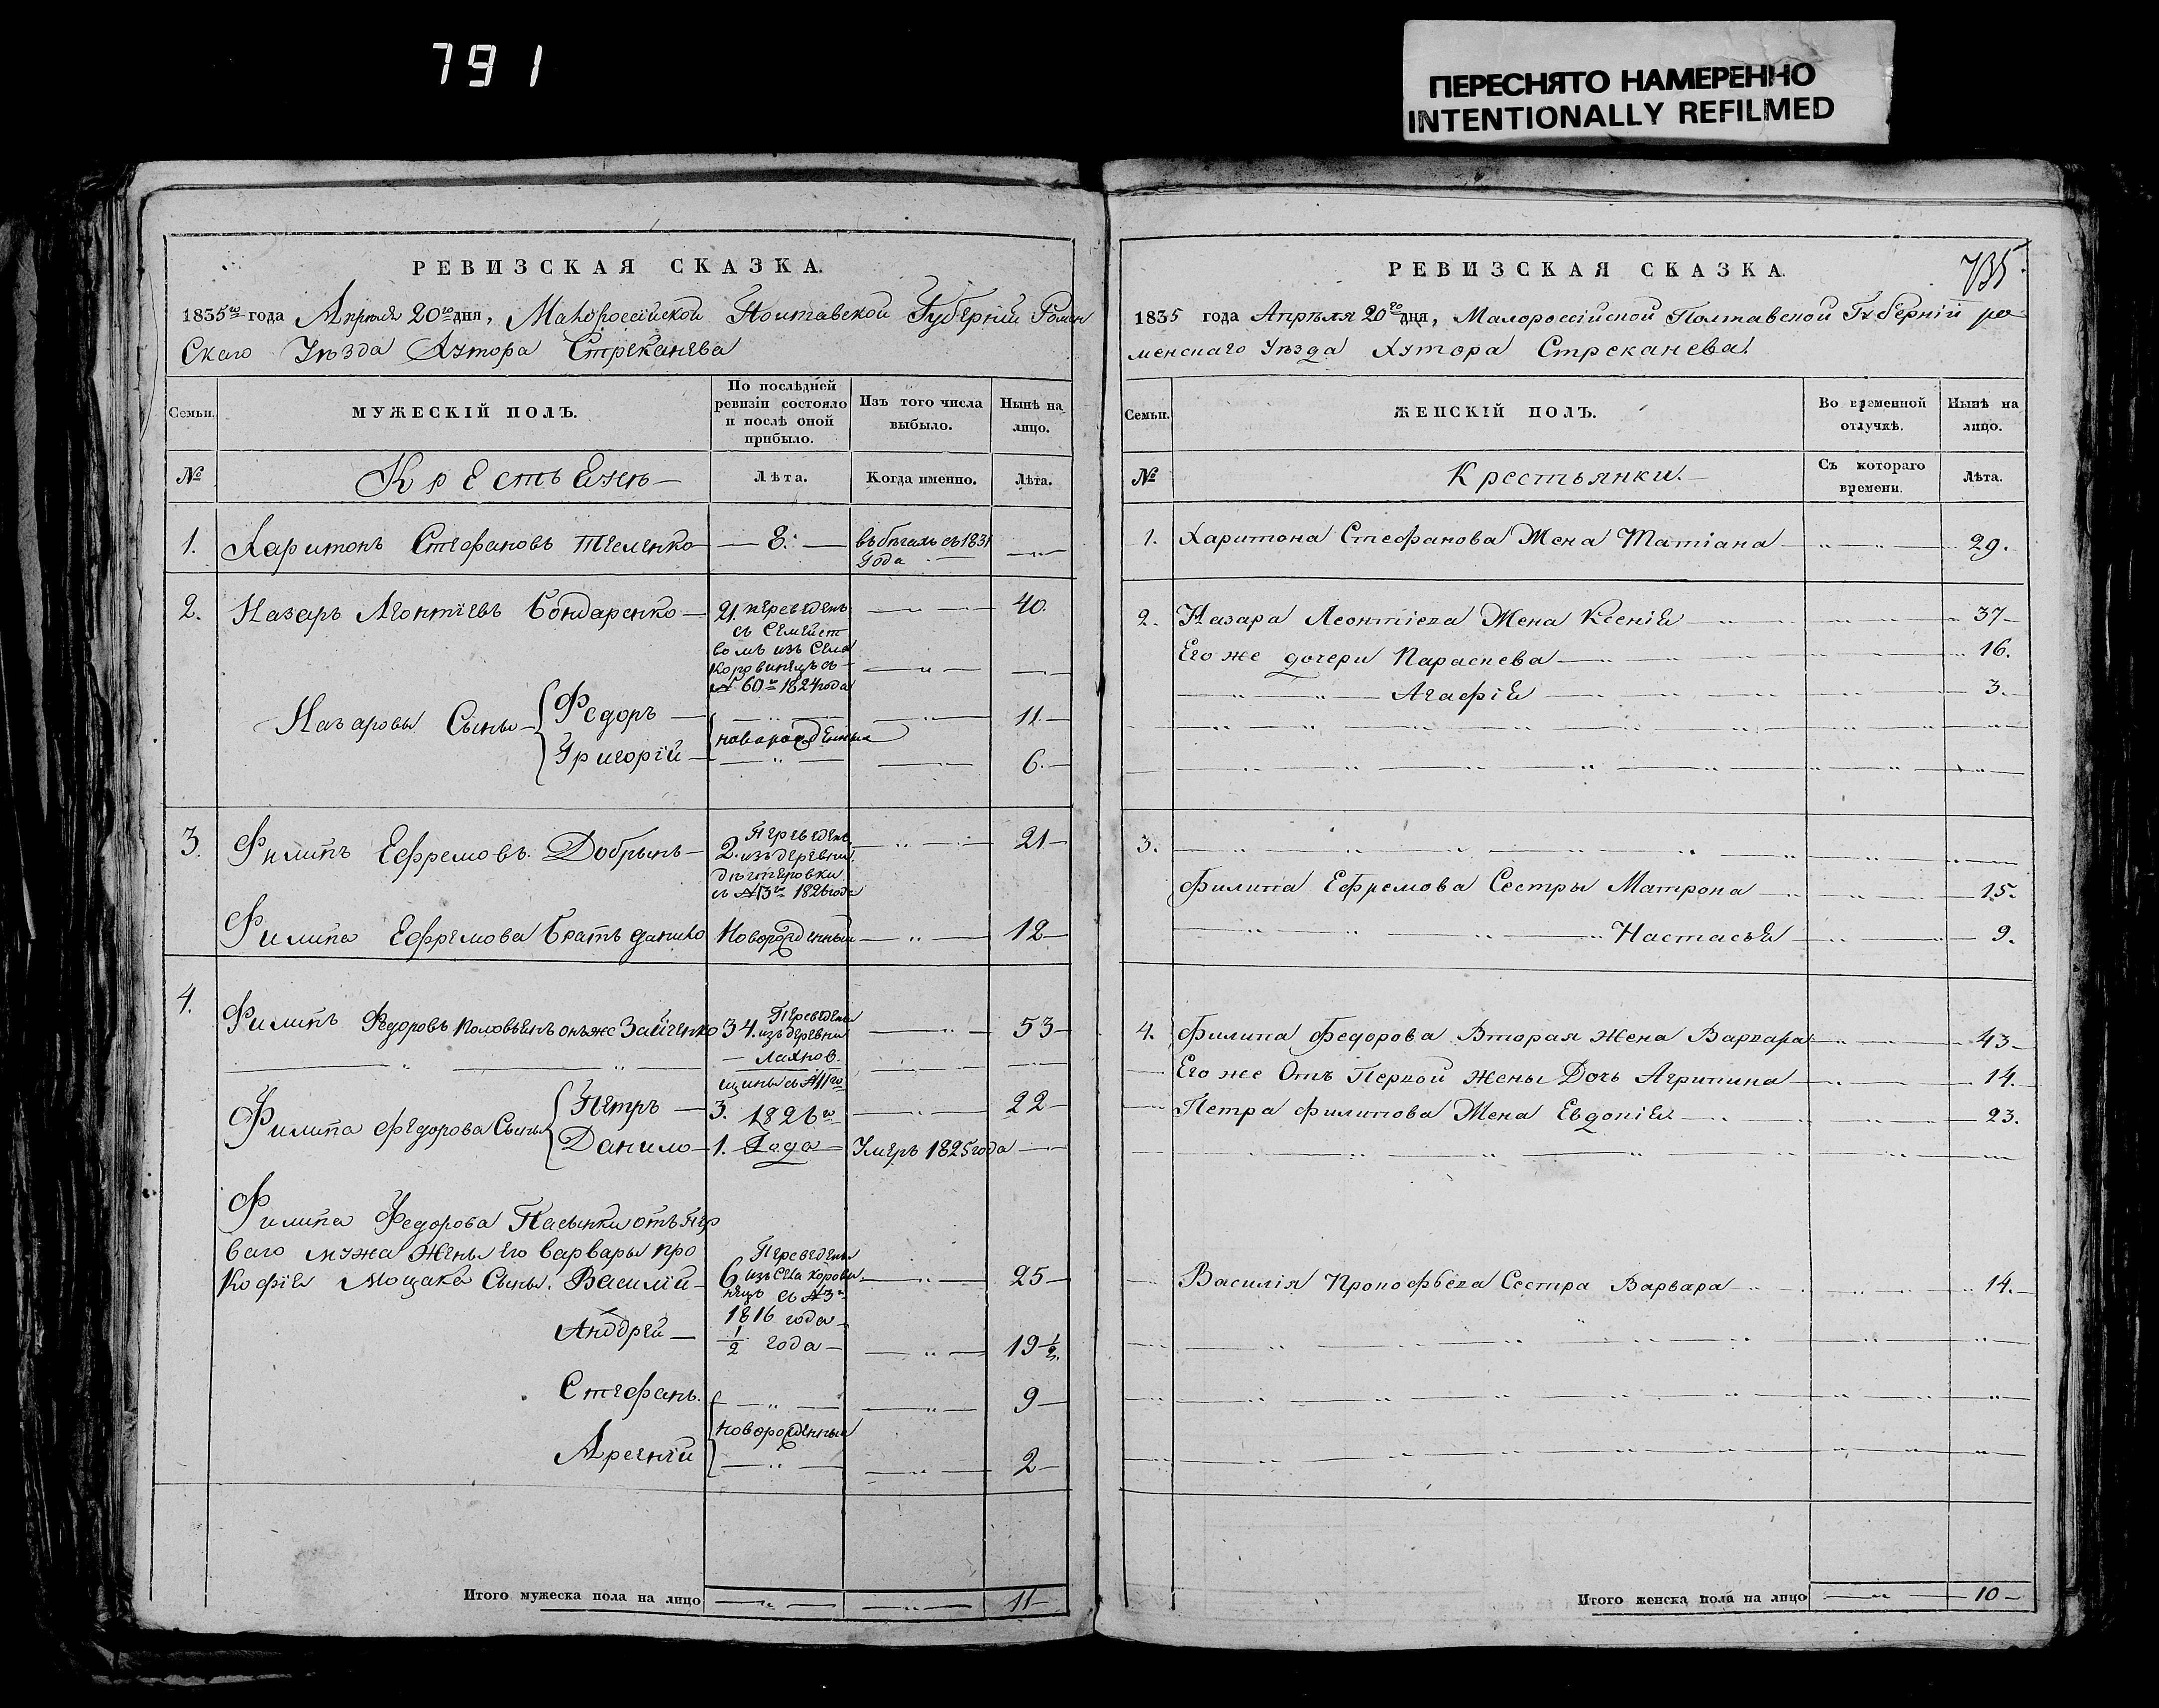 791
ПЕРЕСНЯТО НАМЕРЕННО
INTENTIONALLY REFILMED
РЕВИЗСКАЯ СКАЗКА.
1835го года Апреля 20го дня, Малороссійской Полтавской Губерніи Ромен
Скаго Уѣзда Хутора Стреканева
Семьи.
МУЖЕСКІЙ ПОЛЪ.
По послѣдней ревизіи состояло и послѣ оной прибыло.
Изъ того числа выбыло.
Нынѣ на лицо.
№
Лѣта.
Когда именно.
Лѣта.
1. Харитонъ Стефановъ — 8. — въ бѣгахъ съ 1831 года
2. Назаръ Леонтіевъ Бондаренко — 21. переведенъ 40.
съ Семейст
вомъ изъ Села
Коровинецъ съ
№ 60го 1824 года
Назаровы Сыны Федоръ — 11
новорожденныя
Григорій — 6.
3. Филипъ Ефремовъ Добрынь — 2. Переведенъ изъ деревни 21
съ № 13го 1826 года
Филипа Ефремова Братъ Данило Новорожденный — 12
4. Филипъ Федоровъ онъже Зайченко 34. Переведены изъ деревни 53
Лахнов
щины съ № 11го
Филипа Федорова Сыны Петръ — 3. 1826го 22
Данило — 1. Года Умеръ 1825 года
Филипа Федорова Пасынки отъ Пер
ваго мужа Жены его Варвары Про
кофія Мощака Сыны. Василій — 6. Переведены изъ Села Корови 25
нецъ съ № 3го
1816 года
Андрей — 1/2 года 19 1/2.
Стефанъ. 9
новорожденныя
Арсеній 2
Итого мужеска пола на лицо 11
РЕВИЗСКАЯ СКАЗКА.
735.
1835 года Апрѣля 20го дня, Малороссійской Полтавской Губерніи ро
менскаго Уѣзда Хутора Стреканева.
Семьи.
ЖЕНСКІЙ ПОЛЪ.
Во временной отлучкѣ.
Нынѣ на лицо.
№
Крестьянки.
Съ котораго времени.
Лѣта.
1. Харитона Стефанова Жена Татіана 29.
2. Назара Леонтіева Жена Ксенія 37
Его же дочери Параскева 16.
Агафія 3.
3.
Филипа Ефремова Сестры Матрона 15.
Настасья 9.
4. Филипа Федорова Вторая Жена Варвара 43
Его же Отъ Первой Жены Дочь Агрипина 14.
Петра Филипова Жена Евдокія 23.
Василія Прокофьева Сестра Варвара 14.
Итого женска пола на лицо 10